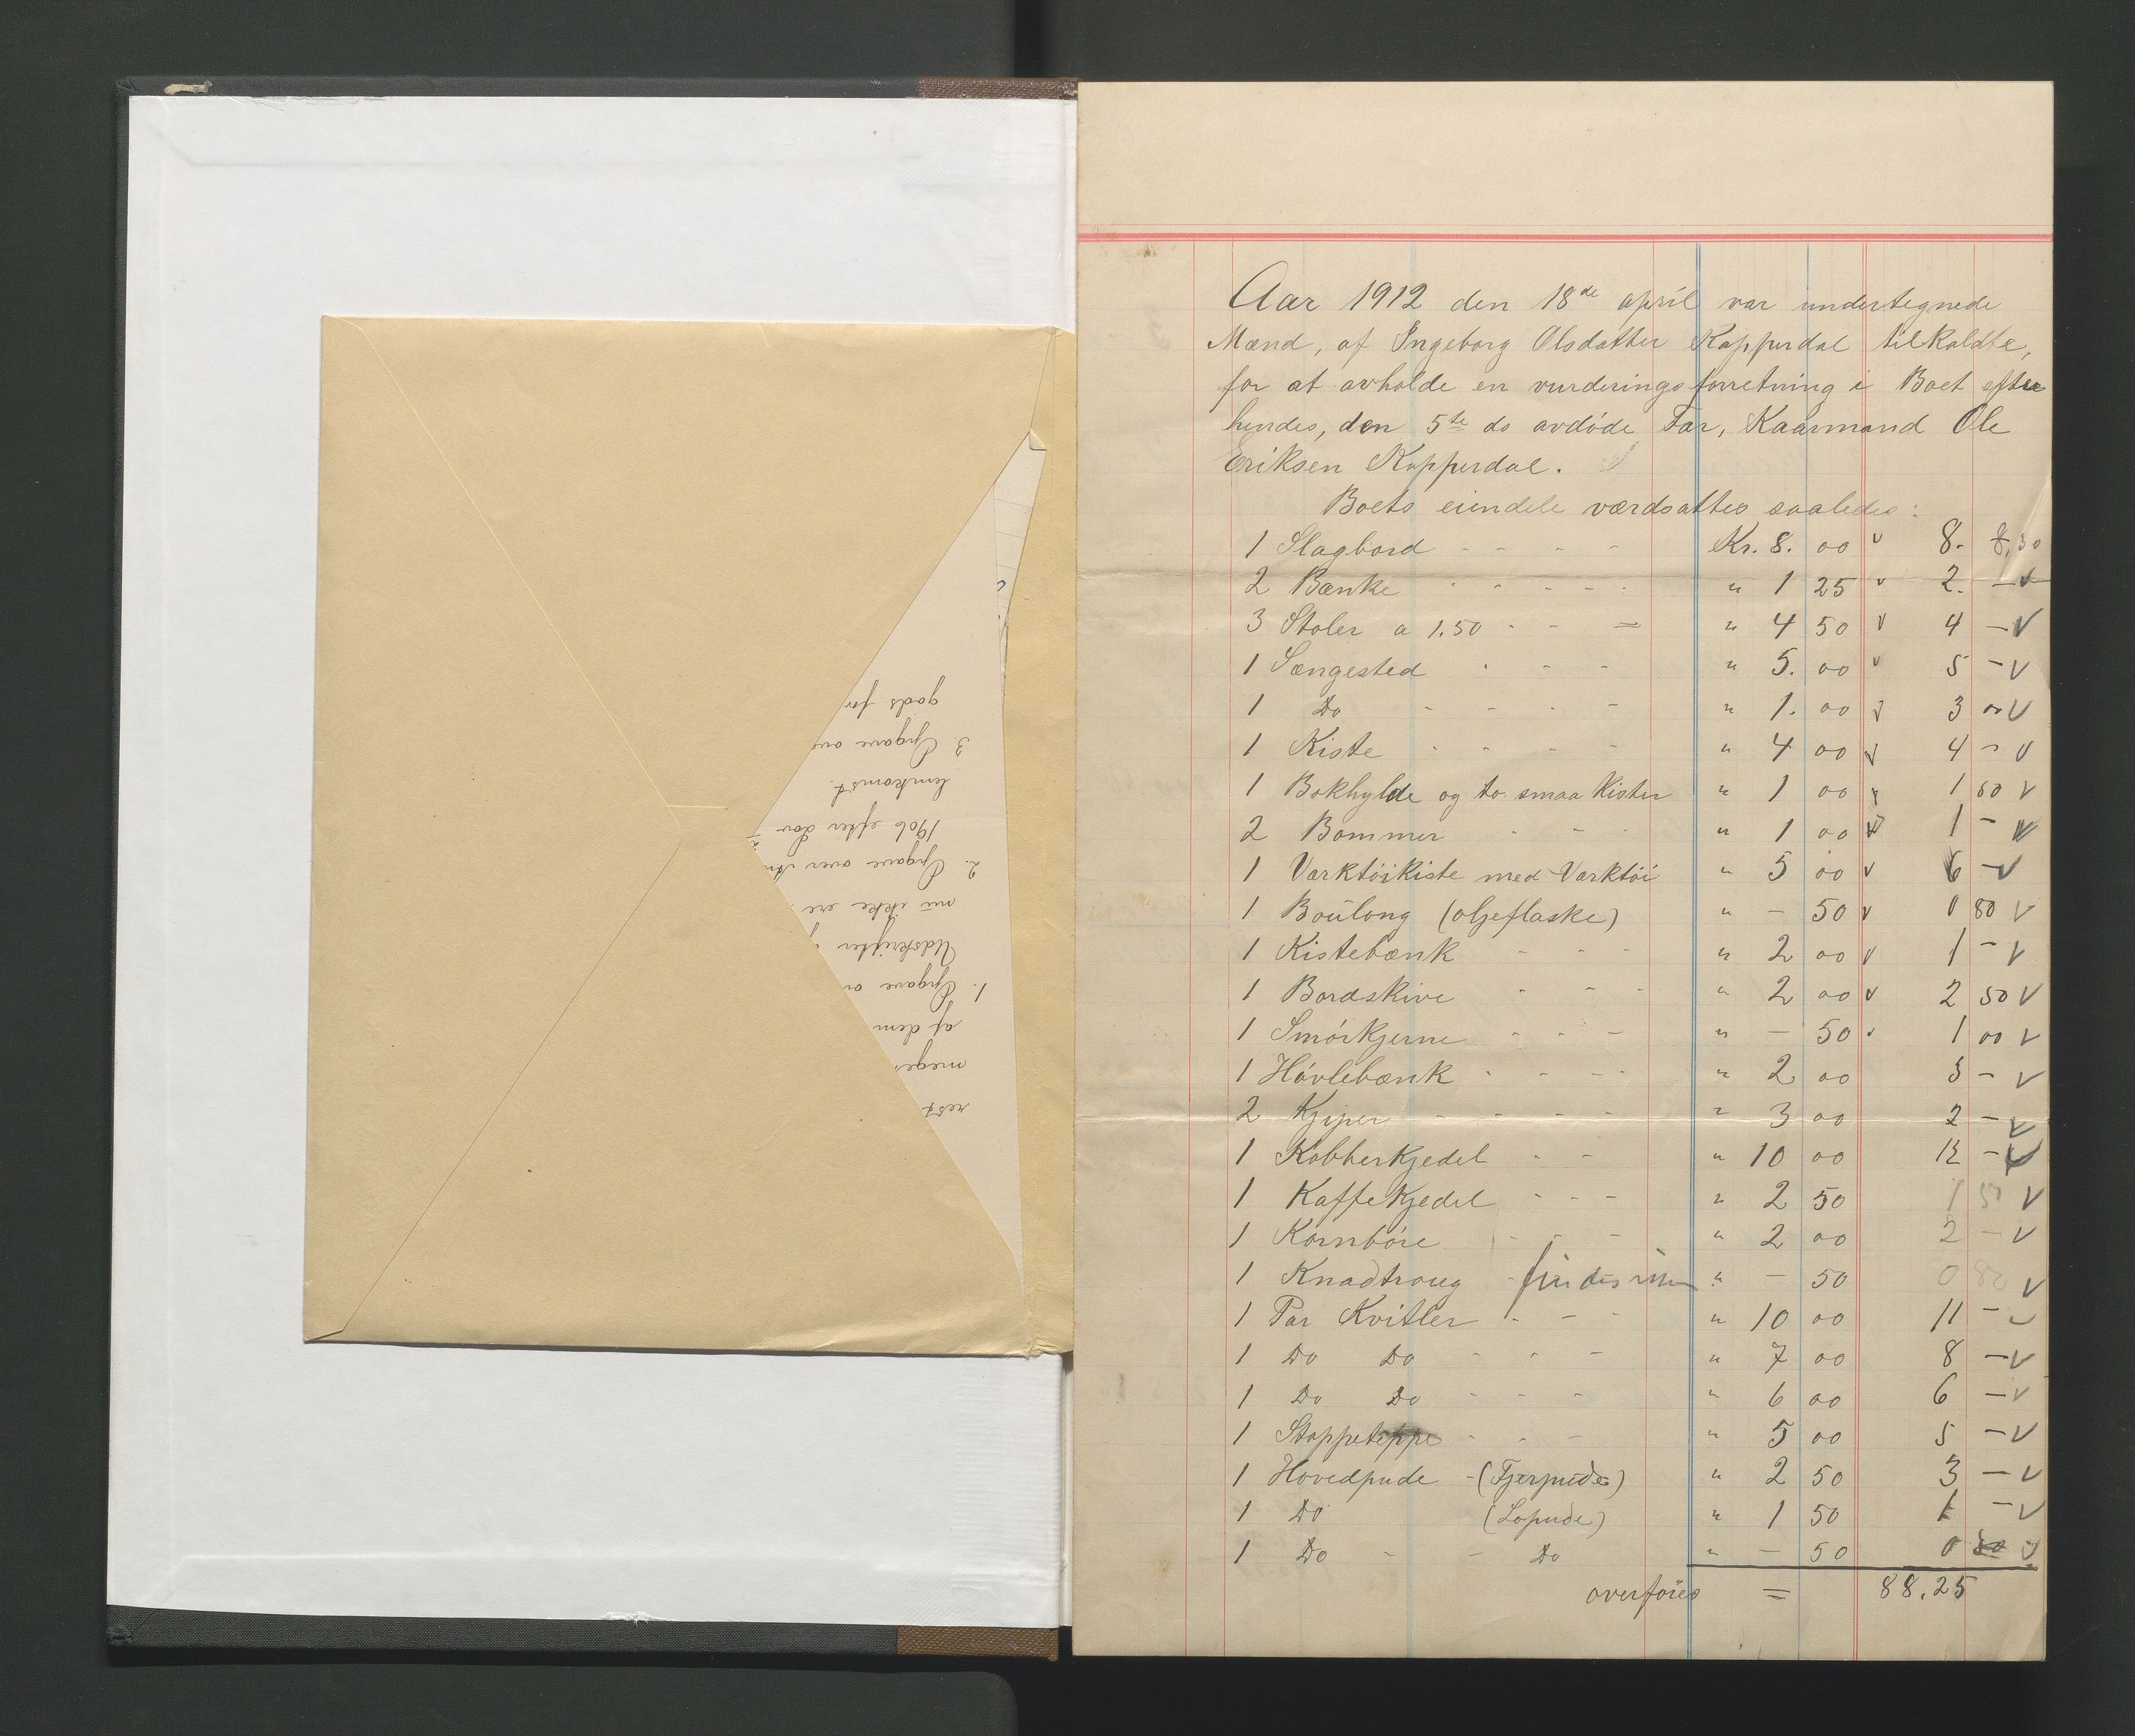 gods for
3. Opgave
lemkomst.
1906 efter Lov
2. Opgave over
nu ikke ere
Udskrifter
1. Opgave
af dem
rest
Aar 1912 den 18de april var undertegnede
Mænd, af Ingeborg Olsdatter Kopperdal tilkaldte,
for at avholde en vurderingsforretning i Boet efter
hendes, den 5te ds avdøde Far, Kaarmand Ole
Eriksen Kopperdal.
Boets eiendele værdsattes saaledes:
1 Slagbord - - - - Kr. 8. 00 v 8. 8,50
2 Bænke - - - - - " 1 25 v 2. - v
3 Stoler a 1.50 - - = " 4 50 v 4 - v
1 Sængested - - - " 5. 00 v 5 - v
1 Do - - - - " 1. 00 v 3 00 v
1 Kiste - - - - " 4 00 v 4 - v
1 Bokhylde og to smaa Kister " 1 00 v 1 50 v
2 Bommer - - - " 1 00 v 1 - v
1 Værktøikiste med Værktøi " 5 00 v 6 - v
1 Boülong (oljeflaske) " - 50 v 0 80 v
1 Kistebænk - - - " 2 00 v 1 - v
1 Bordskive - - - " 2 00 v 2 50 v
1 Smørkjerne - - - " - 50 v 1 00 v
1 Høvlebænk - - - - " 2 00 3 - v
2 Kjiper - - - - " 3 00 2 - v
1 Kobberkjedel - - " 10 00 12 - v
1 Kaffekjedel - - - " 2 50 1 50 v
1 Kornbøre - - - " 2 00 2 - v
1 Knadtroug - findes " - 50 0 80 v
1 Par Kvitler - - - " 10 00 11 - v
1 Do Do - - - " 7 00 8 - v
1 Do Do - - - " 6 00 6 - v
1 Stoppeteppe - - - " 5 00 5 - v
1 Hovedpude - (Fjerpude) " 2 50 3 - v
1 Do (Lopude) " 1 50 1 - v
1 Do - - Do " - 50 0 50 v
overføres = 88.25